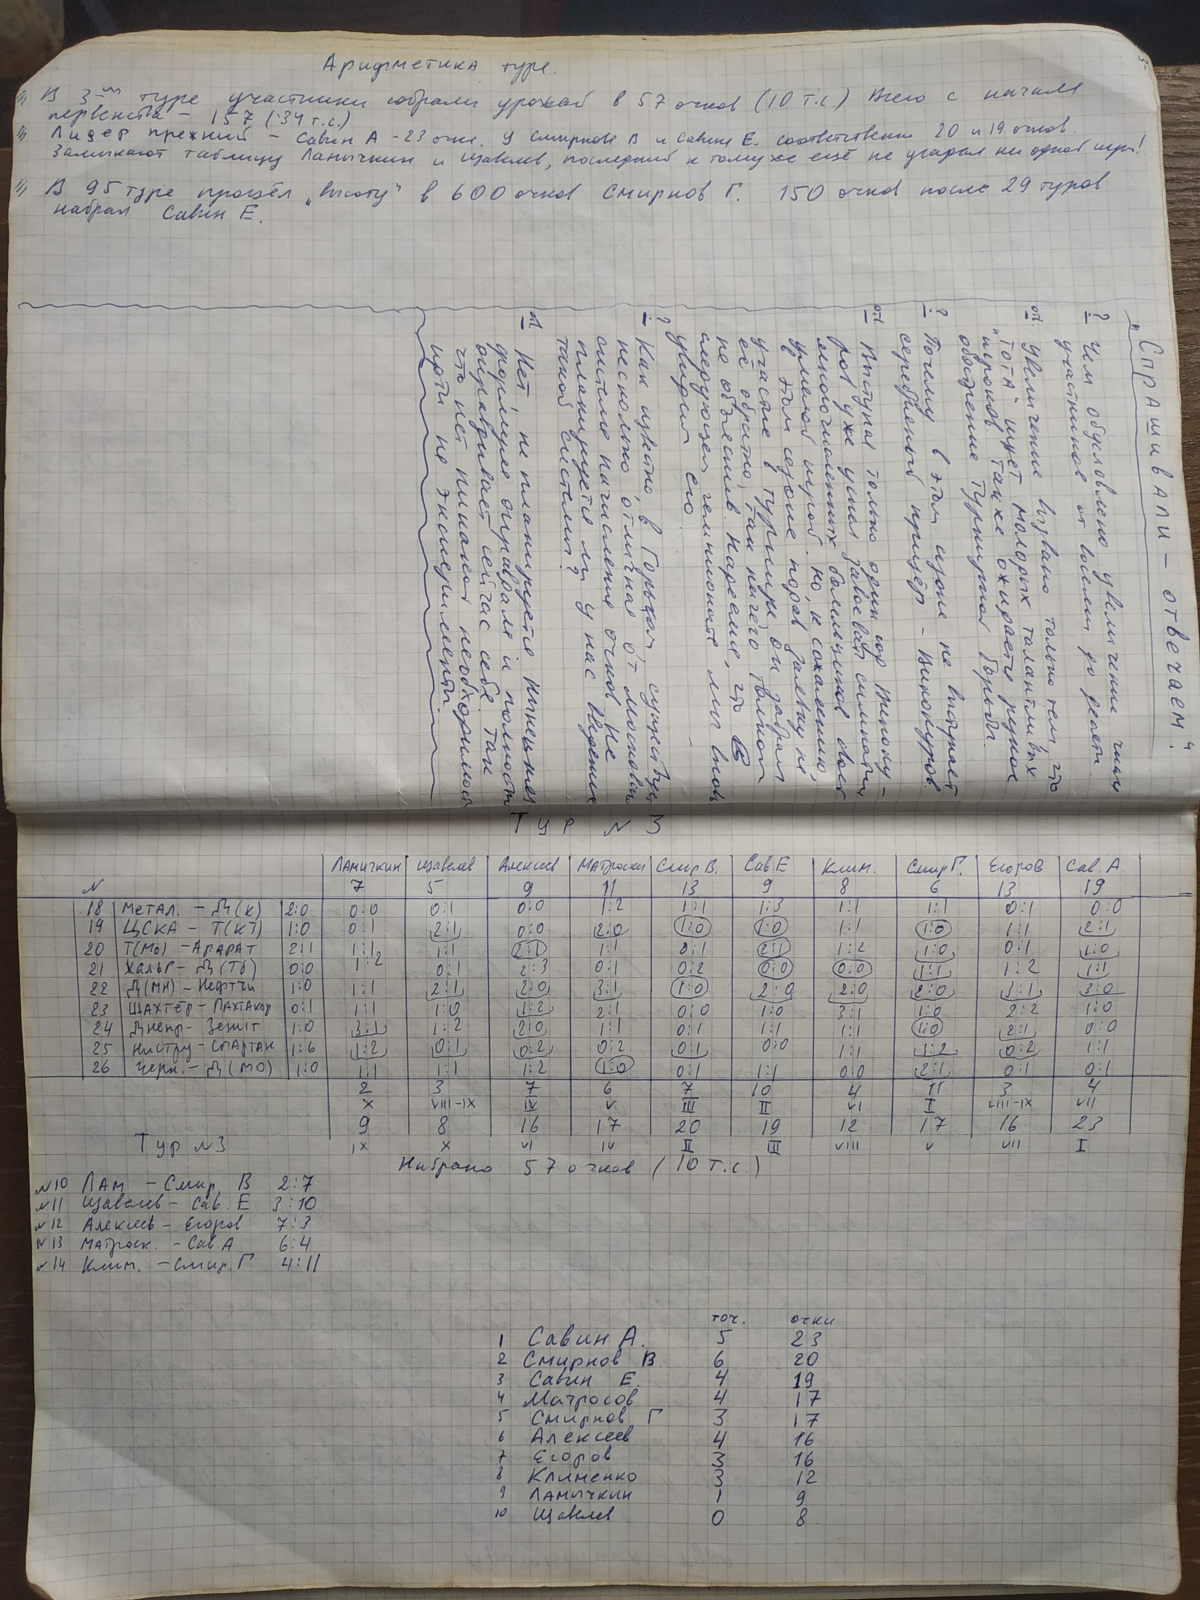 Арифметика туре.
В 3-ем туре участники собрали урожай в 57 очков (10 т.с.) Всего с начала
первенства – 157 (34 т.с.)
Лидер прежний – Савин А – 23 очк. У Смирнова В и Савина Е. соответственно 20 и 19 очков.
Замыкают таблицу Ламычкин и Щавелев, последний к тому же ещё не угадал ни одной игры!
В 95 туре прошёл „высоту" в 600 очков Смирнов Г. 150 очков после 29 туров
набрал Савин Е.
„Спрашивали – отвечаем."
? Чем обусловлено увеличение числа
участников от восьми до десяти
от Увеличение вызвано только тем, что
„ТОТА" ищет молодых талантливых
игроков, также ожидается
обострение турнирной борьбы.
? Почему в этом сезоне не выступает
серебряный призёр – Винокуров.
от Выступая только один год Виноку-
ров уже успел завоевать симпатии
многочисленных болельщиков своей
игрой. Но, к сожалению,
в этом сезоне подав заявку на
участие в турнире, он забрал
её обратно, так ничего толком
не объяснив. Надеемся, что в
следующем чемпионате мы вновь
увидим его.
? Как известно, в Горьком существует
несколько отличная от московской
система начисления очков. Не
планируется ли у нас введение
такой системы?
от Нет, не планируется. Нынешняя
оправдала и полностью
оправдывает сейчас себя. Так
что нет никакой необходимости
идти на эксперименты.
Тур №3
N Ламычкин Щавелев Алексеев Матроскин Смир В. Сав. Е Клим. Смир Г. Егоров Сав. А
7 5 9 11 13 9 8 6 13 19
18 Метал. – Д(К) 2:0 0:0 0:1 0:0 1:2 1:1 1:3 1:1 1:1 0:1 0:0
19 ЦСКА – Т(КТ) 1:0 0:1 2:1 0:0 2:0 1:0 1:0 1:1 1:0 1:1 2:1
20 Т(Мо) – Арарат 2:1 1:1 1:1 2:1 1:1 0:1 2:1 1:2 1:0 0:1 1:0
21 Кайр – Д(Тб) 0:0 1:2 0:1 2:3 0:1 0:2 0:0 0:0 1:1 1:2 1:1
22 Д(Мн) – Нефтчи 1:0 1:1 2:1 2:0 3:1 1:0 2:0 2:0 2:0 3:1 3:0
23 Шахтёр – Пахтакор 0:1 1:1 1:0 1:2 2:1 0:0 1:0 3:1 1:0 2:2 1:0
24 Днепр – Зенит 1:0 3:1 1:2 2:0 1:1 0:1 1:1 1:1 1:0 2:1 0:0
25 Нистру – Спартак 1:6 1:2 0:1 0:2 0:2 0:1 0:0 1:1 1:2 0:2 1:1
26 Черн. – Д(Мо) 1:0 1:1 1:1 1:2 1:0 0:1 1:1 0:0 2:1 0:1 0:1
2 3 7 6 7 10 4 11 3 4
X VIII-IX IV V III II VI I VIII-IX VII
9 8 16 17 20 19 12 17 16 23
IX X VI IV II III VIII V VII I
Тур №3
Набрано 57 очков (10 т.с.)
№10 Лам – Смир. В 2:7
№11 Щавелев – Сав. Е 3:10
№12 Алексеев – Егоров 7:3
№13 Матроск. – Сав А 6:4
№14 Клим. – Смир. Г 4:11
точ. очки
1 Савин А. 5 23
2 Смирнов В 6 20
3 Савин Е. 4 19
4 Матросов 4 17
5 Смирнов Г 3 17
6 Алексеев 4 16
7 Егоров 3 16
8 Клименко 3 12
9 Ламычкин 1 9
10 Щавелев 0 8